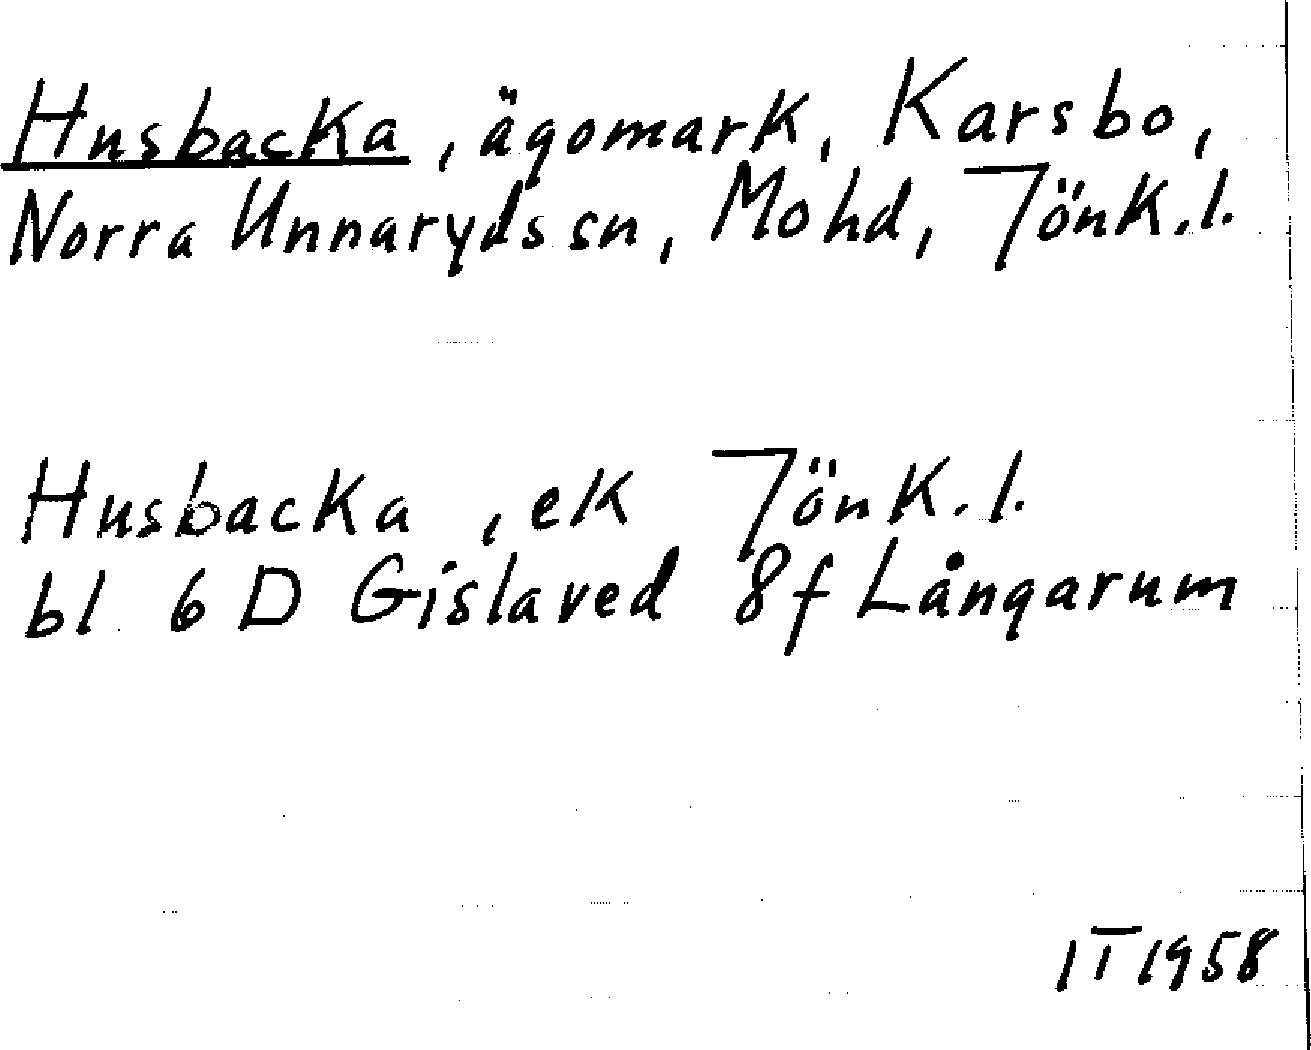 Husbacka, ägomark, Karsbo,
Norra Unnaryds sn, Mo hd, Jönk.l.
Husbacka, ek Jönk.l.
bl 6 D Gislaved 8f Långarum
IT 1958